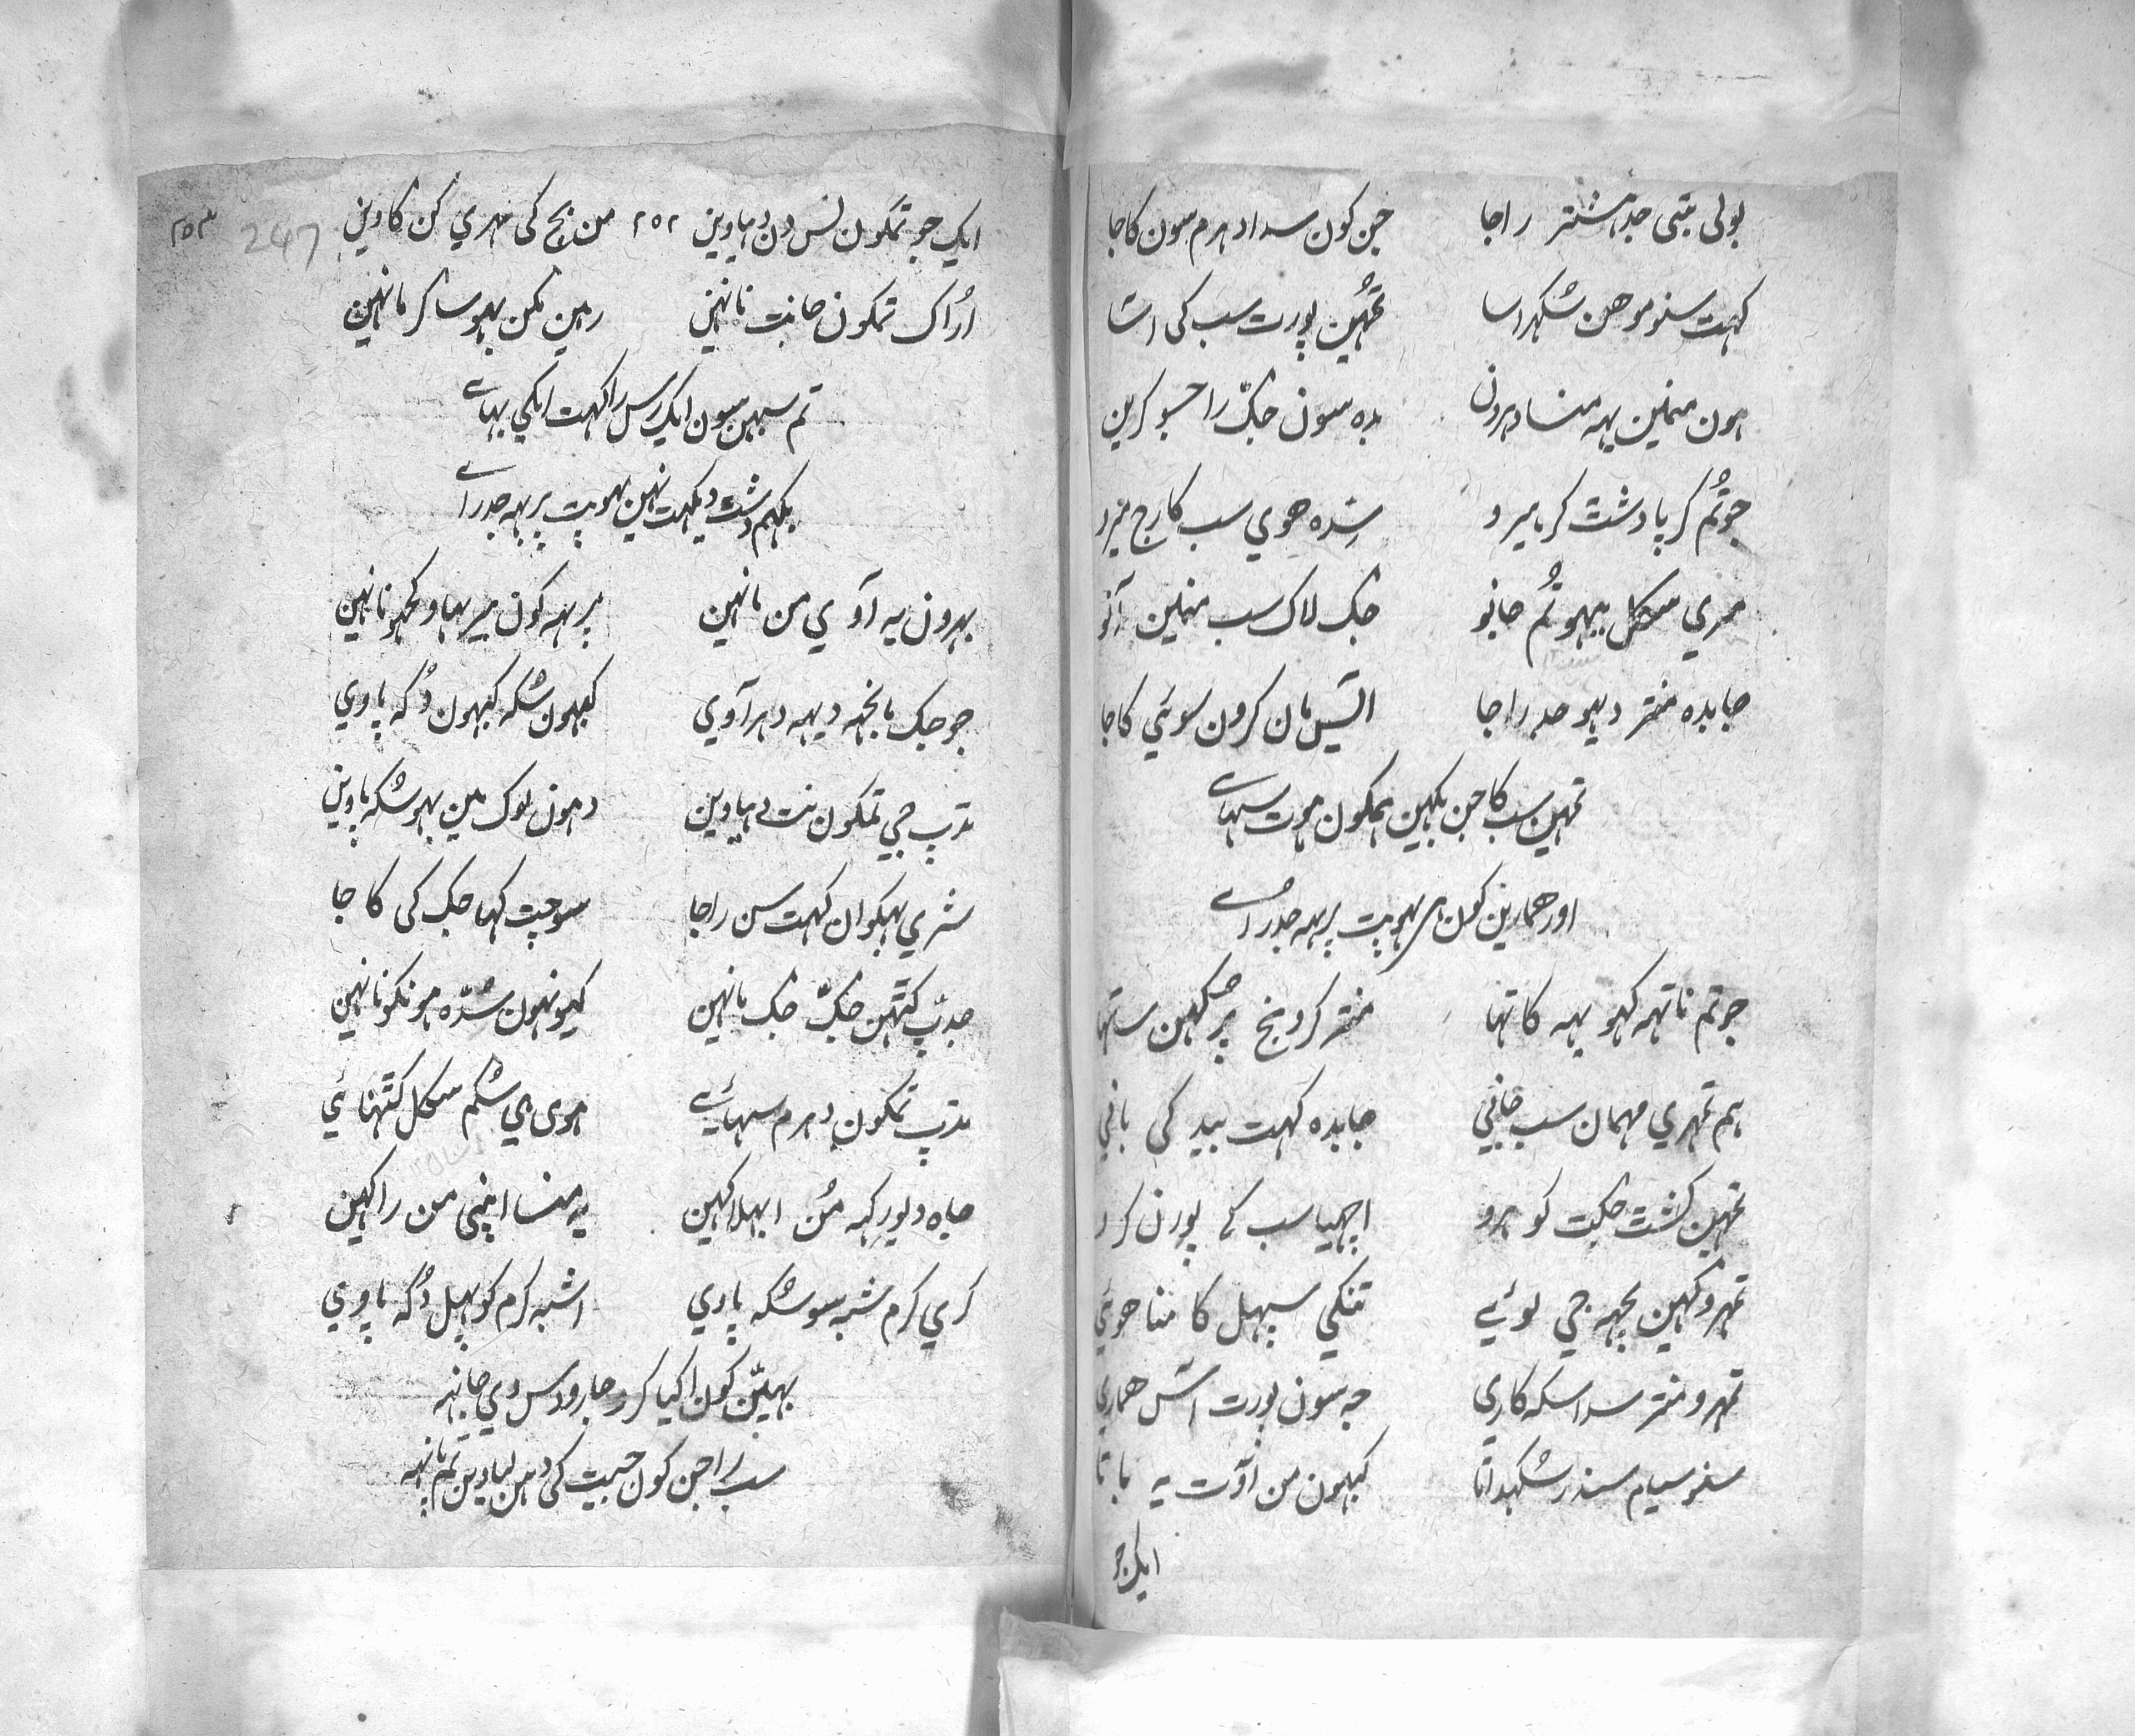 بولی تبی جدہشتر راجا جن کون سدا دہرم سون کاجا
کہت سنو موھن سُکہراسا تمُہین پورت سب کی اسا
ہون منمین یہہ منسا دہرون بدہ سون جگ راجسو کرین
جو تُم کرپا دشت کر ہیرو سِدہ ھوی سب کارج میرو
ہمری سکل بیہو تُم جانو جگ لاک سب منمین آنو
جا بدہ منتر دیہو جدراجا آیس مان کرون سوئی کاجا
تمہین سب کاجن بکہین ہمکون ہوت سہاے
اور ھمارین کون ہی بہوپت پرہہ جدراے
جو تم ناتہہ کہو یہہ کاتہا منتر کرو نج پر کہین ساتہا
ہم تمہری مہمان سب جانی جا بدہ کہت بید کی بانی
تمہین کشت جکت کو ہرو اچہیا سب کے پورن کرو
تمہرو کہین بچہہ جی لوئے تنکی سپہل کامنا ھوئی
تمہرو منتر سدا سکہ کاری جہ سون پورت آس ھماری
سنو سیام سندر سُکہداتا کبہون من آوت یہ باتا
ایک جو
ایک جو تمکون نس دن دہیاوین ۲۵۲ من بچ کی تمہری گن گاوین
۲۵۳ 247
اُر اک تمکون جانت نانہین رہین مگن بہو ساگر مانہین
تم سبہن سون ایک رس راکہت ایکی بہاے
بکہم دشت دیکہت نہین بہوپت پربہہ جدراے
بہرون یہ آوی من مانہین پربہہ کون بیر بہاو کچہو نانہین
جو جگ مانجہہ دیہہ دہر آوی کبہون سُکہ کبہون دُکہ پاوی
تدپ جی تمکون نت دہیاوین دہون لوک مین بہو سُکہ پاوین
شری بہگوان کہت سن راجا سوچت کہا جگ کی کاجا
جدپ کٹہن جگ جگ مانہین کیو نہون سُدہ ہو نکو نانہین
تدپ تمکون دہرم سہائے ہوی ہی سُگم سکل کٹہنائی
جاہ دیور کہہ مُن ابہلاکہین یہ منسا اپنی من راکہین
کری کرم شبہ سو سُکہ پاوی اشبہ کرم کو پہل دُکہ پاوی
بہیین کون اکیا کرو چارو دس وی جانہہ
سب راجن کون جیت کی دہن لیاوین تم پانہہ